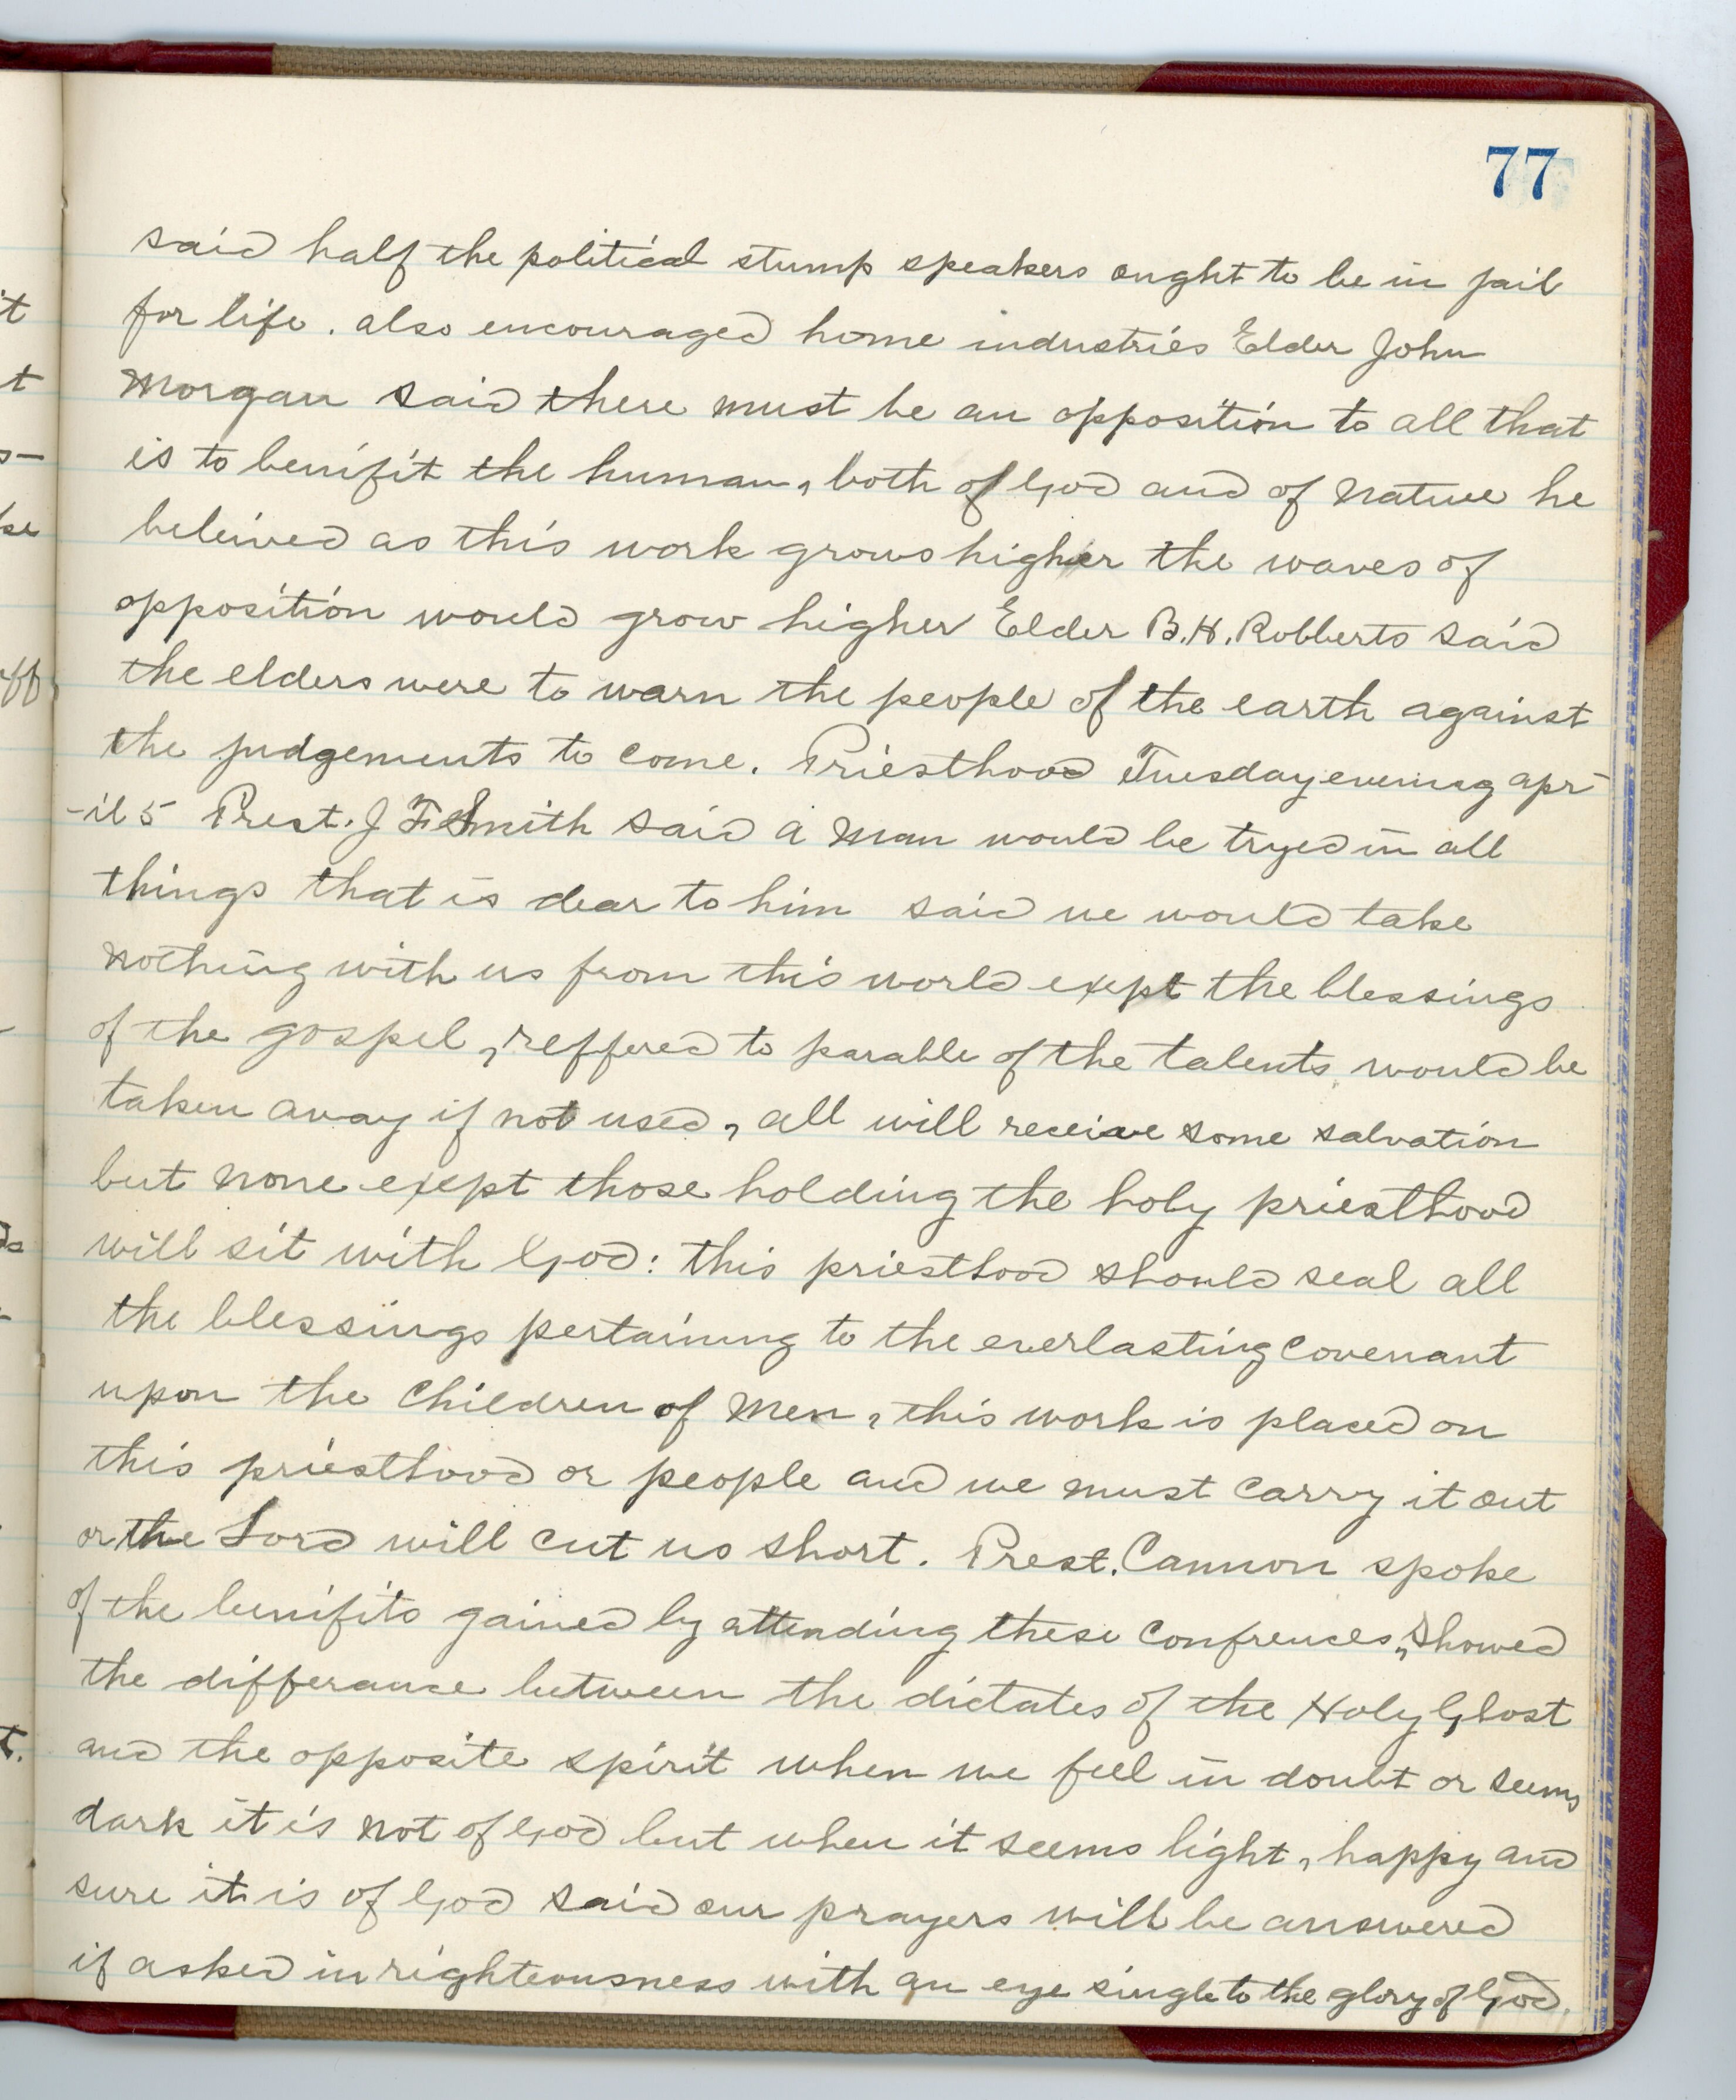 77
said half the political stump speakers ought to be in jail
for life. also encouraged home industries Elder John
Morgan said there must be an opposition to all that
is to benifit the human, both of God and of Nature he
beleived as this work grows higher the waves of
opposition would grow higher Elder B.H. Robberts said
the elders were to warn the people of the earth against
the judgements to come. Priesthood Tuesday evening apr-
-il 5 Prest. J F Smith said a man would be tryed in all
things that is dear to him said we would take
nothing with us from this world exept the blessings
of the gospel, reffered to parable of the talents would be
taken away if not used, all will receive some salvation
but none exept those holding the holy priesthood
will sit with God: this priesthood should seal all
the blessings pertaining to the everlasting Covenant
upon the Children of Men, this work is placed on
this priesthood or people and we must carry it out
or the Lord will cut us short. Prest. Cannon spoke
of the benifits gained by attending these Confrences, Showed
the differance between the dictates of the Holy Ghost
and the opposite spirit when we feel in doubt or seems
dark it is not of God but when it seems light, happy and
sure it is of God said our prayers will be answered
if asked in righteousness with an eye single to the glory of God.